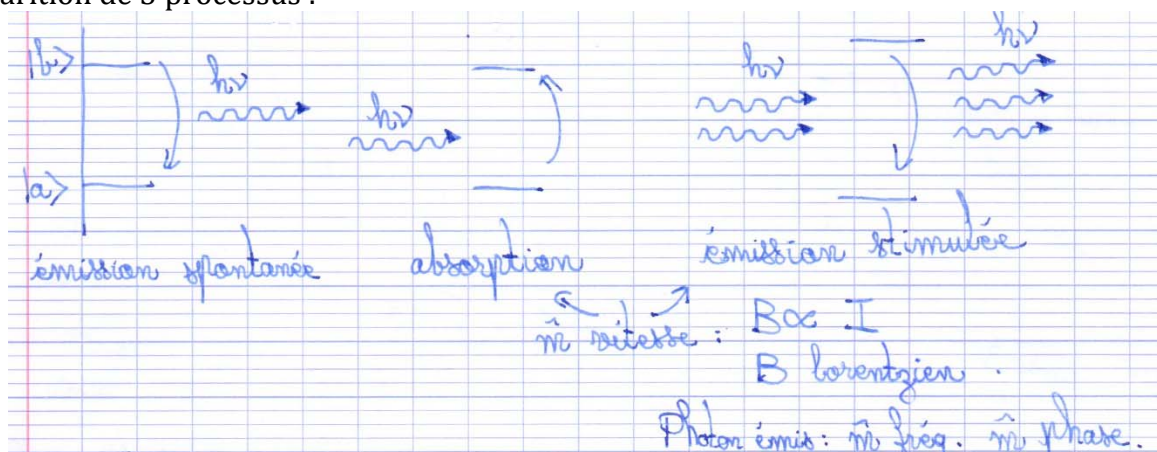 arition de 3 processus :
|b> hν hν hν hν
|a>
émission spontanée absorption émission stimulée
m̂ vitesse : B ∝ I
B lorentzien.
Photon émis : m̂ fréq. m̂ phase.